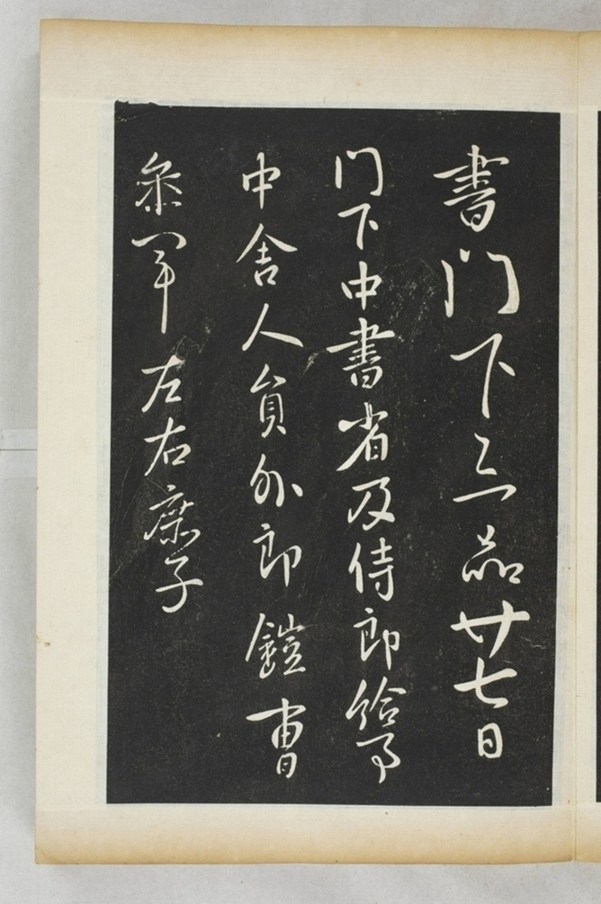 書门下三品廿七日
门下中書省及侍郎給事
中舍人員外郎鎧曹
叅軍左右庶子